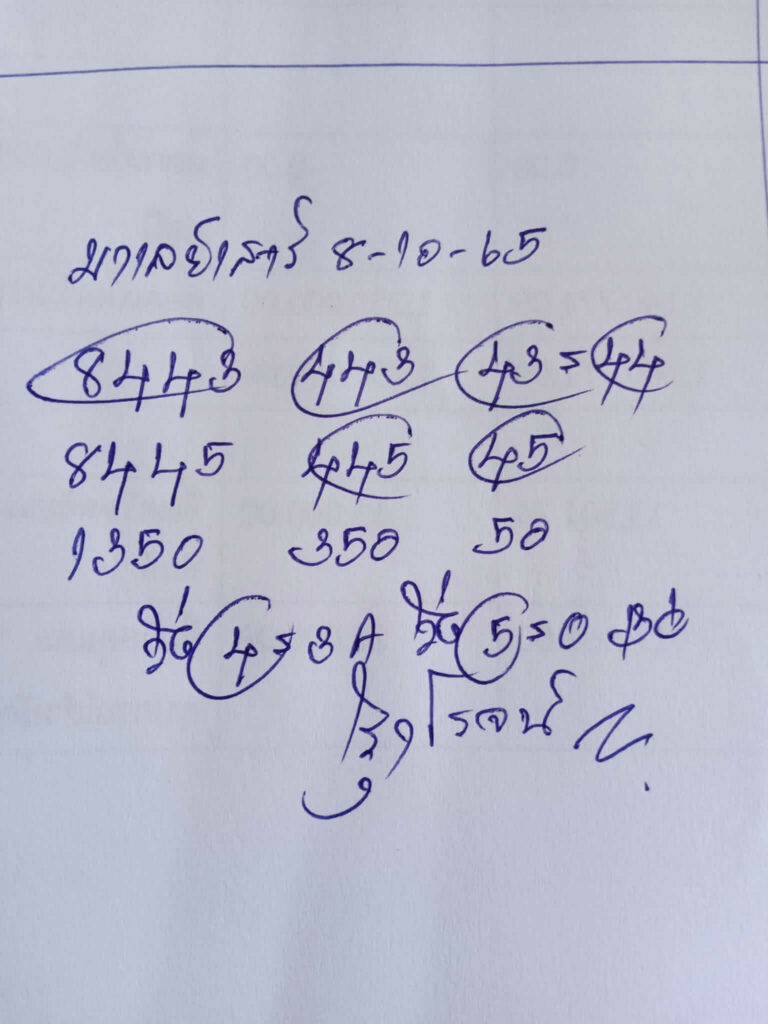 มาเลย์เสาร์ 8-10-65
8443 443 43 = 44
8445 445 45
1350 350 50
วิ่ง 4 = 3 A วิ่ง 5 = 0